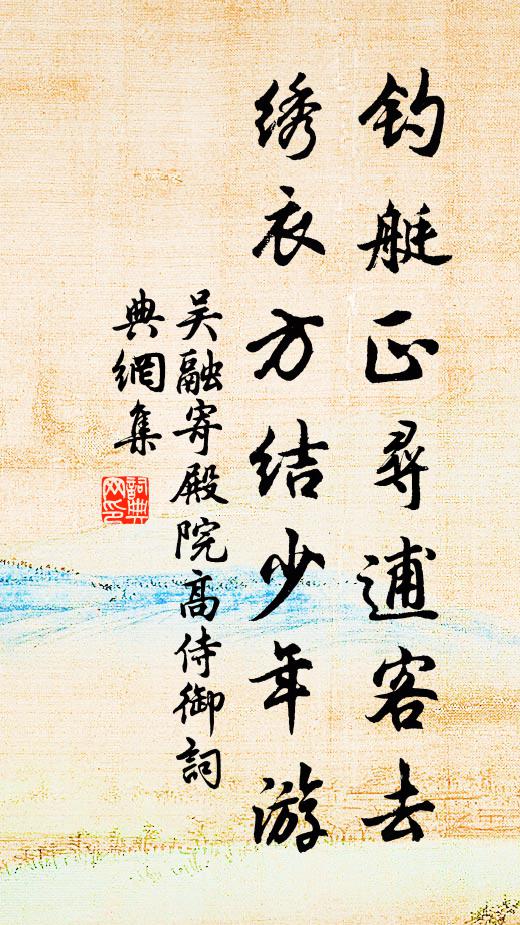 钓艇正寻逋客去
绣衣方结少年游
吴融寄殿院高侍御詞
典網集
詞典
网印